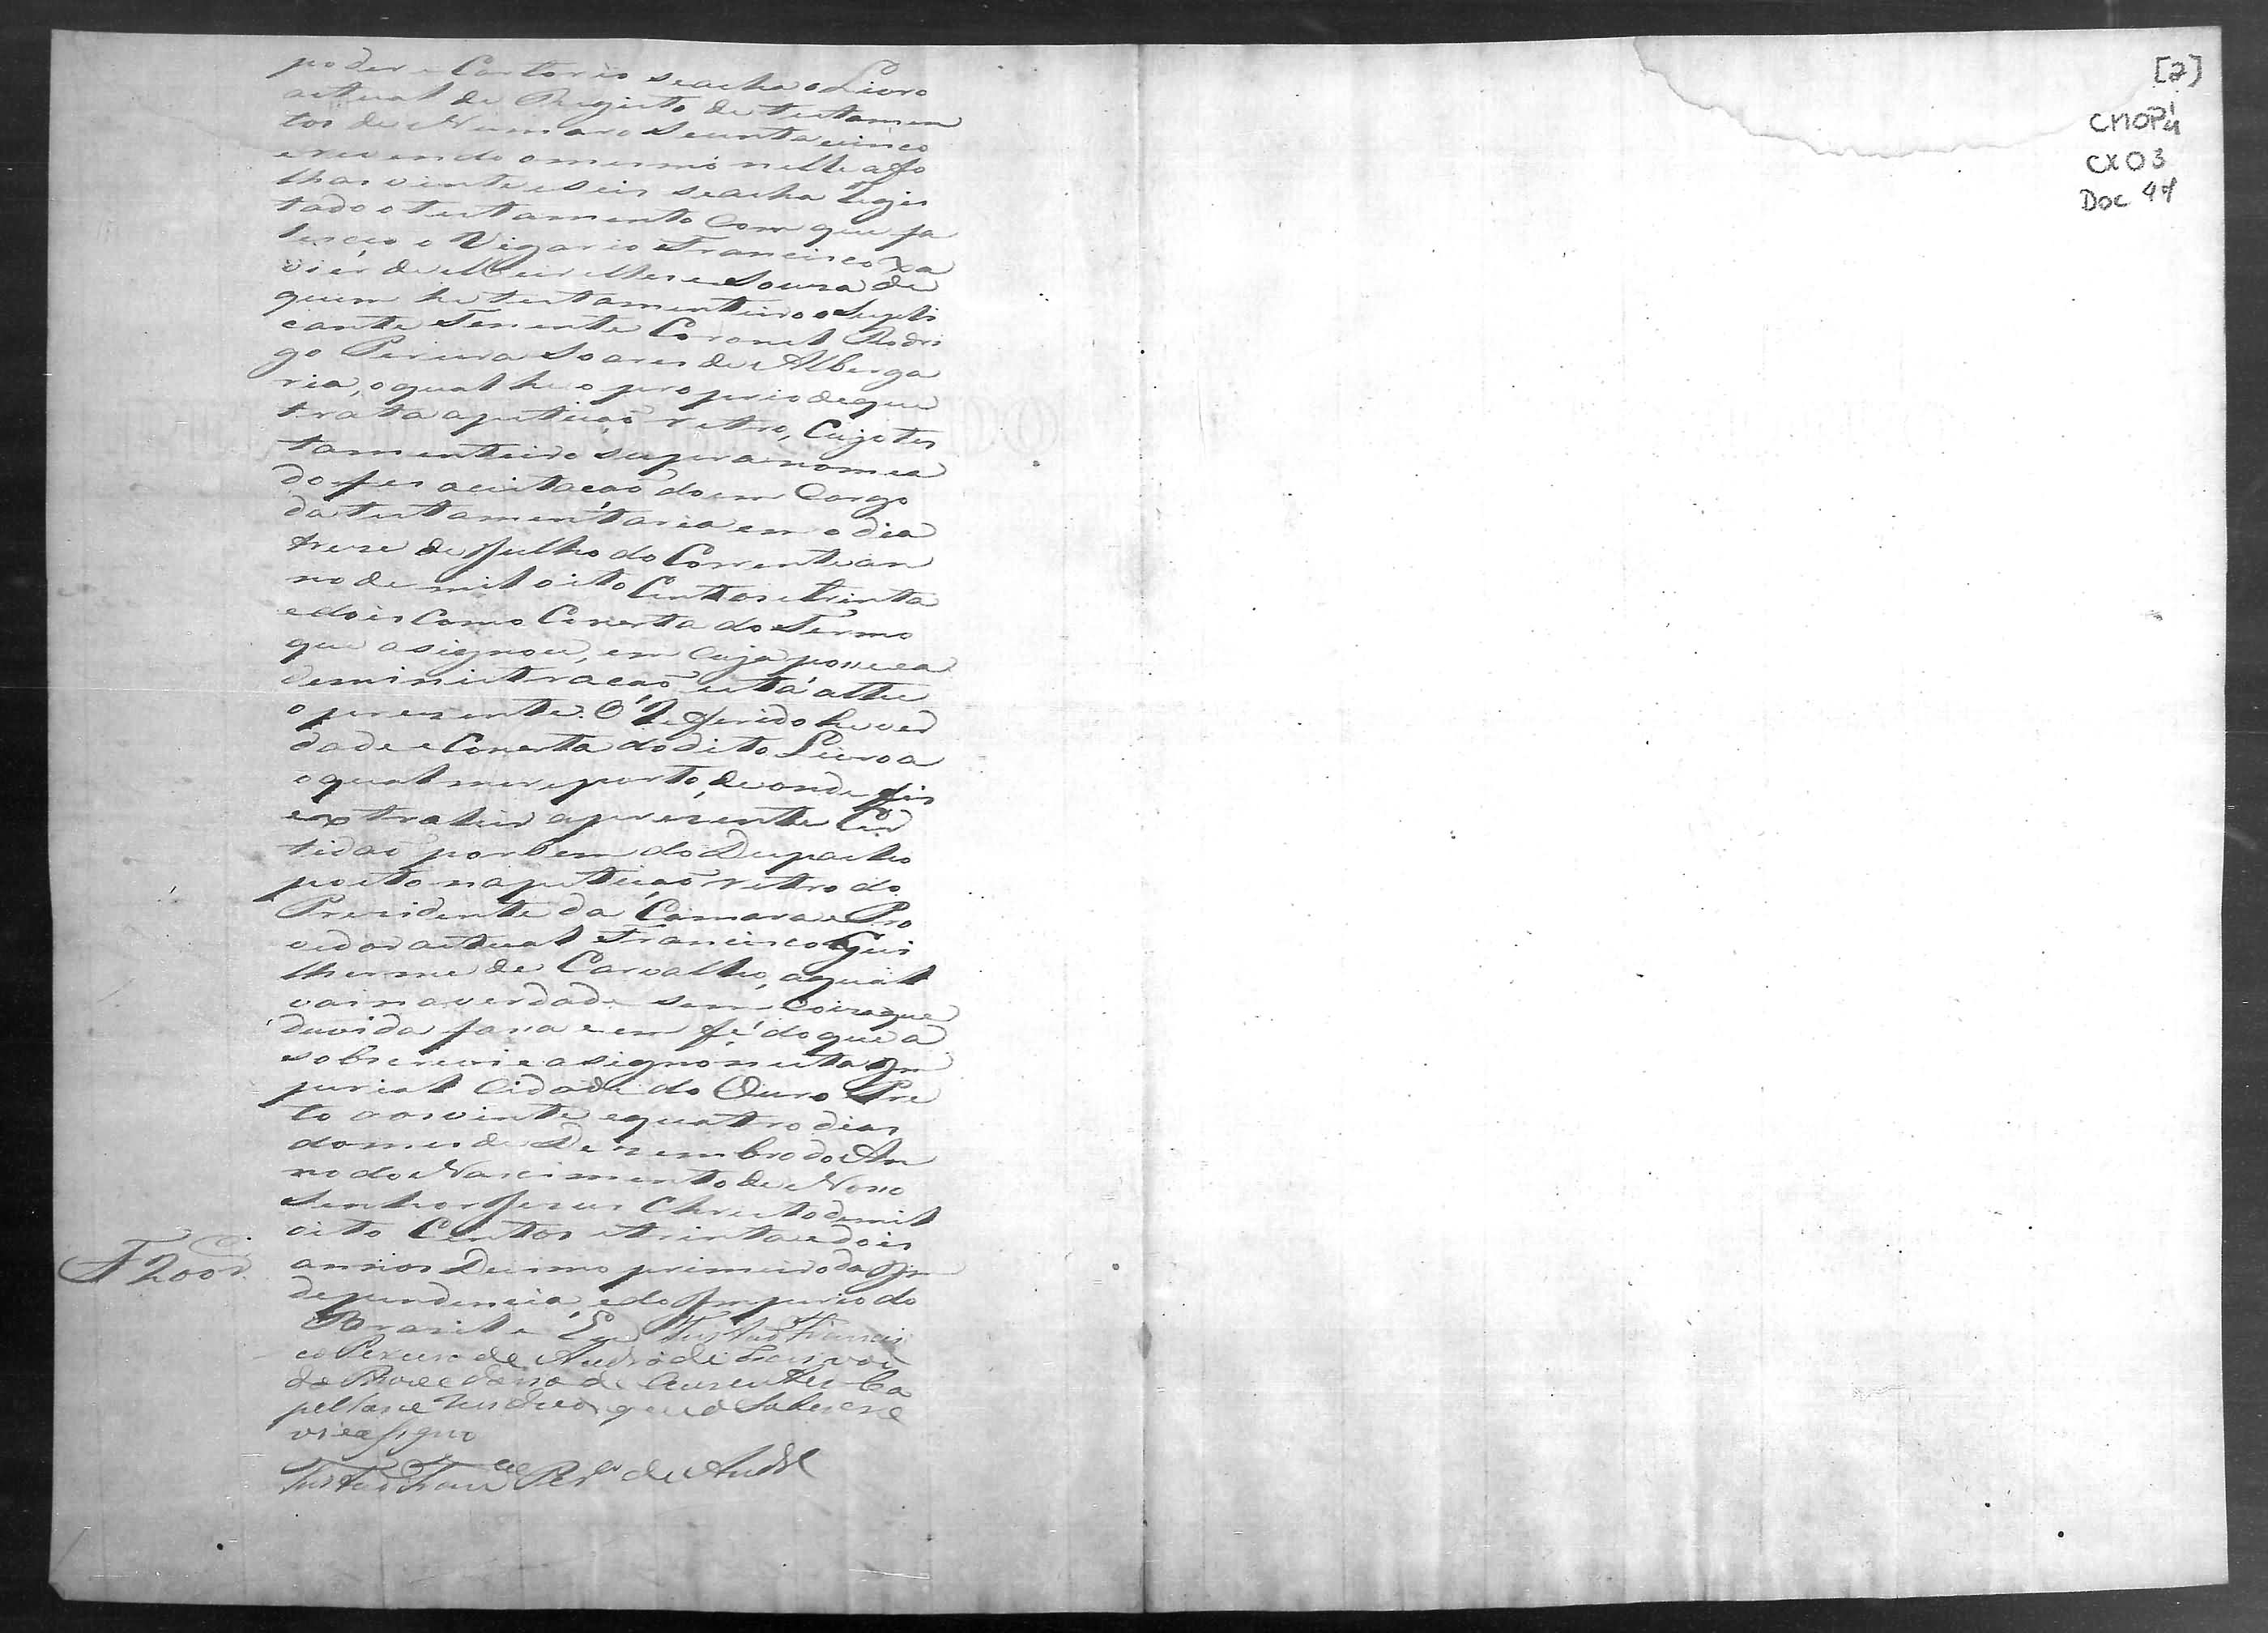 poder e Cartorio se acha o Livro
actual de Registo de testamen
tos de Numaro secenta e cinco
e revendo o mesmo nelle a fo
lhas vinte e seis se acha Regis
tado o testamento Com que fa
lesceo o Vigario Francisco Xa
vier de Meirelles e Sousa de
quem he testamenteiro o Supli
cante Tenente Coronel Rodri
go Pereira Soares de Alberga
ria, o qual he o proprio de que
trata a petiçaõ retro, Cujo tes
tamenteiro supra nomea
do fes aceitaçaõ do em Cargo
da testamentaria em o dia
trese de Julho do Corrente an
no de mil oito Centos e trinta
e dois Como Consta do Termo
que asignou, em cuja posse e a
deministraçaõ está athe
o presente. O Referido he ver
dade e Consta do dito Livro a
o qual me reporto, de onde fis
extrahir a presente Cer
tidaõ por bem do Despacho
posto na petiçaõ retro do
Presidente da Camara e Pro
vedor actual Francisco Gui
lherme de Carvalho, a qual
vai na verdade sem Coisa que
duvida fassa e em fé do que a
sobscrevi e asigno nesta Im
perial Cidade do Ouro Pre
to aos vinte e quatro dias
do mes de Dezembro do An
no do Nascimento de Nosso
Senhor Jesus Christo de mil
oito Centos e trinta e dois
annos Decimo primeiro da In
dependencia, e do Imperio do
Brasil e Eu Francis
co Pereira de Andrade Escrivaõ
da Provedoria de Ausentes Ca
pellas e Residuos que o Sobscre
vi e asigno
Per.ª de Andr.e
200
[2]
CMOP
CX 03
Doc 44